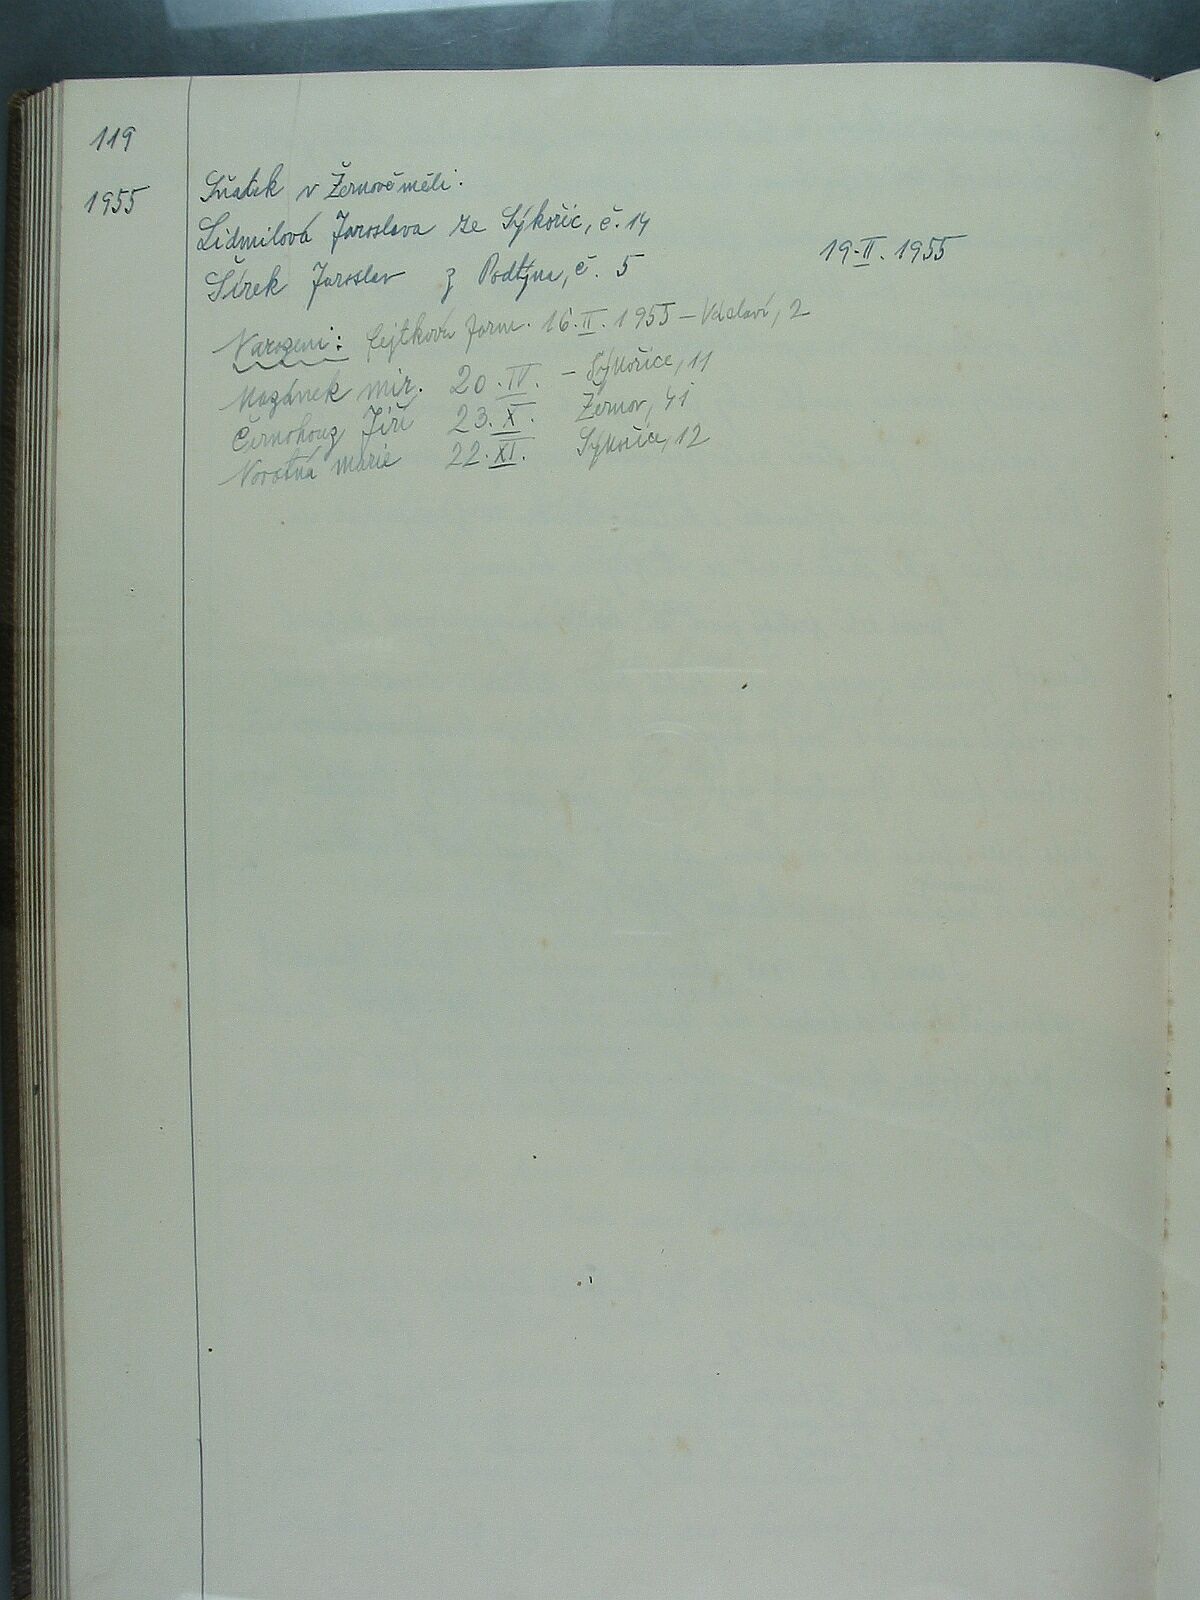 119
1955
Sňatek v Žernově měli.
Lidmilová Jaroslava ze Sýkořic, č. 14
19.II. 1955
Šírek Jaroslav z Podtýna, č. 5
Narozeni: Cejtková Jarm. 16.II. 1955 – Václaví, 2
Mazánek Mir. 20.IV. – Sýkořice, 11
Černohouz Jiří 23.X. Žernov, 41
Novotná Marie 22.XI. Sýkořice, 12